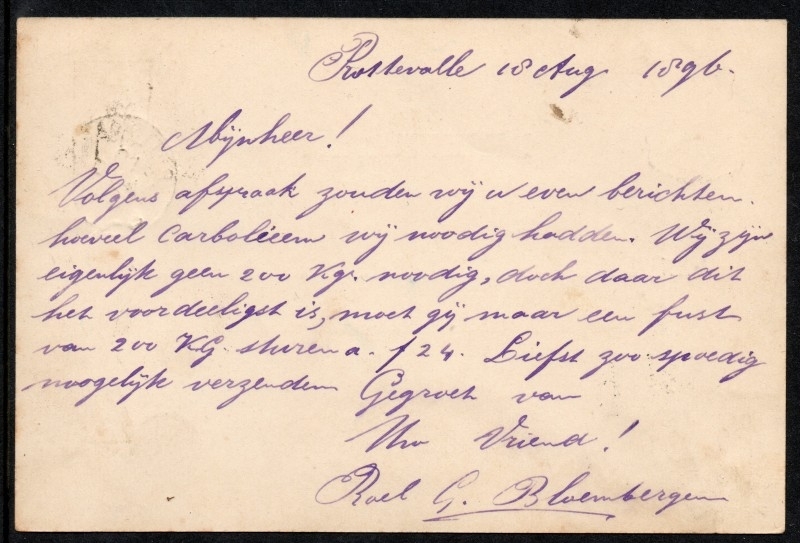 Rottevalle 18 Aug 1896.
Mijnheer!
Volgens afspraak zouden wij u even berichten
hoeveel Carboléeem wij noodig hadden. Wij zijn
eigenlijk geen 200 Kgr. noodig, doch daar dit
het voordeeligst is, moet gij maar een fust
van 200 KG. sturen a. f 24. Liefst zoo spoedig
mogelijk verzenden Gegroet van
Uw Vriend!
Roel G. Bloembergen